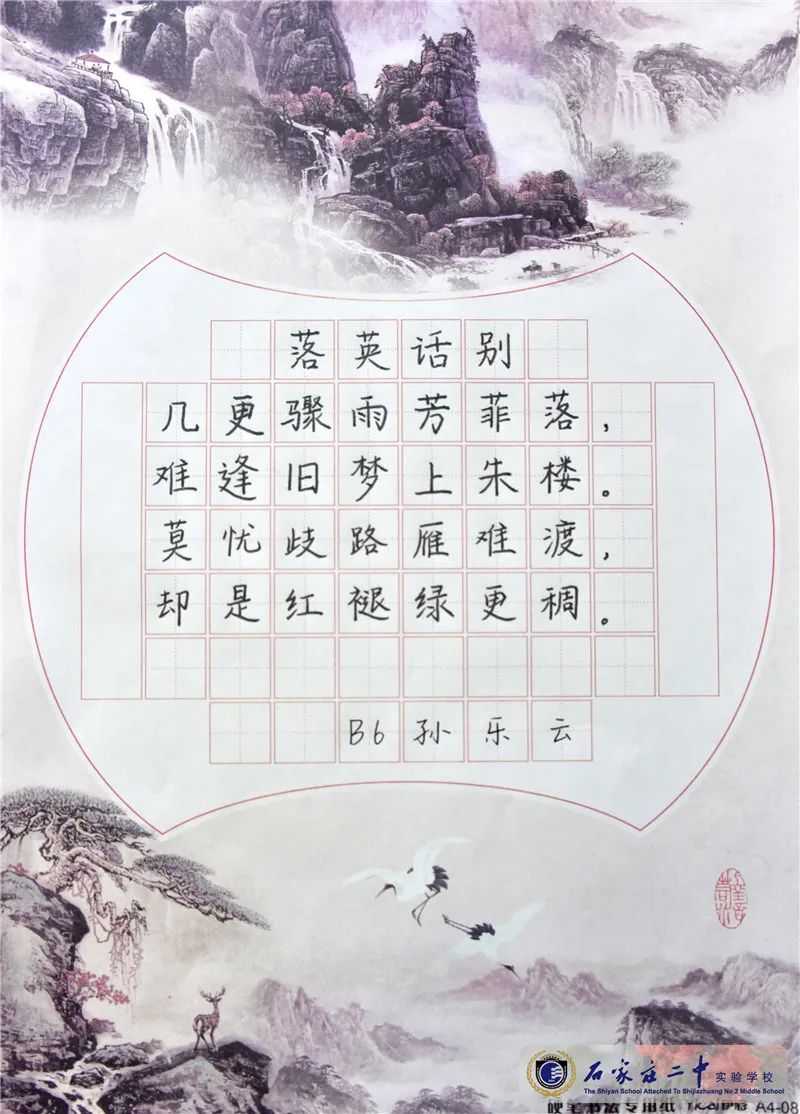 落英话别
几更骤雨芳菲落，
难逢旧梦上朱楼。
莫忧歧路雁难渡，
却是红褪绿更稠。
B6孙乐云
石家庄二中实验学校
The Shiyan School Attached To Shijiazhuang No.2 Middle School
A4-08